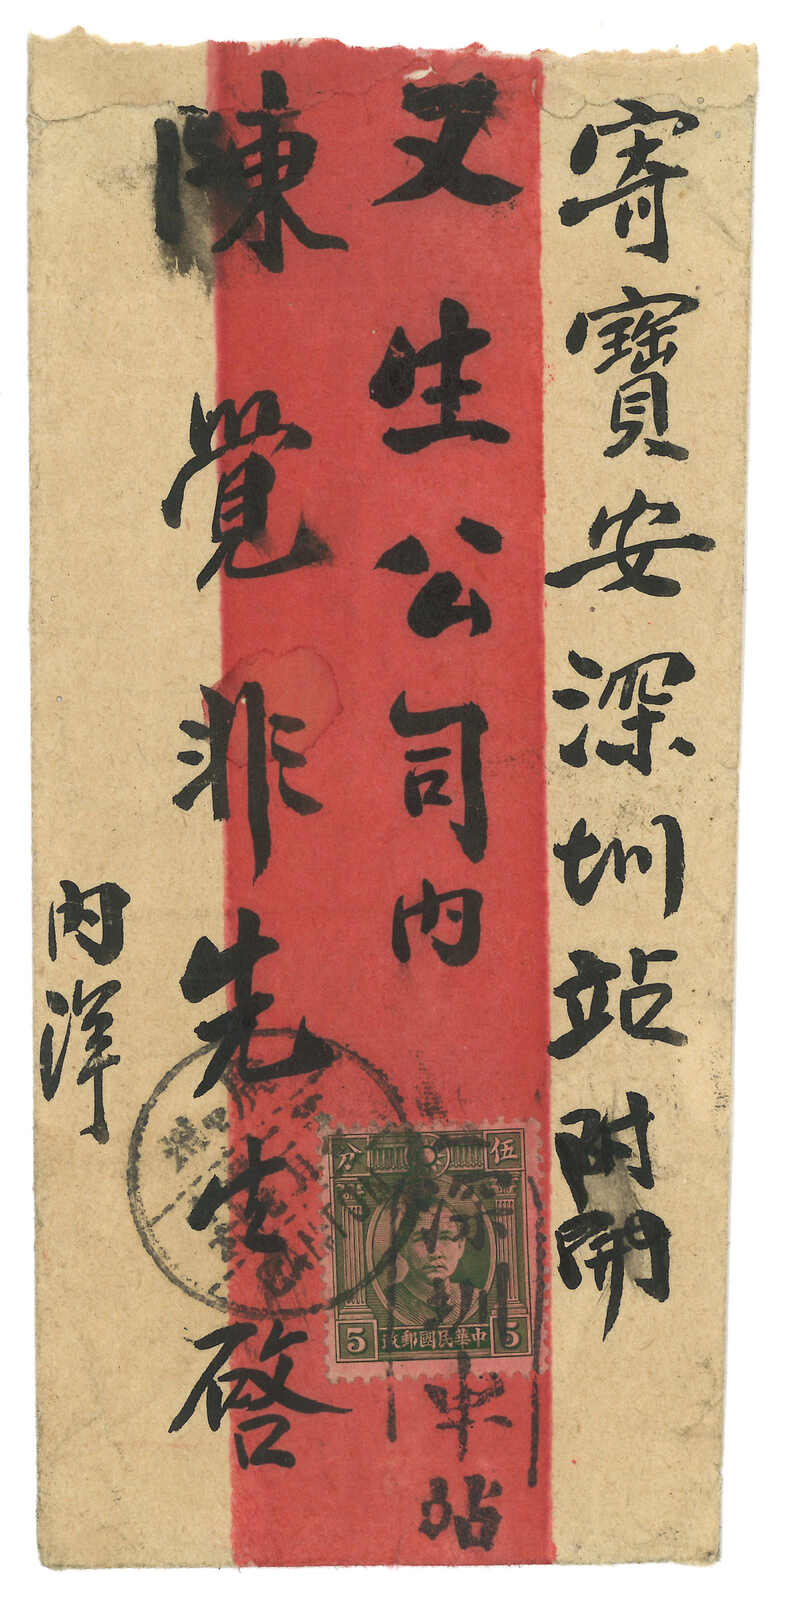 寄寶安深圳站附開
又生公司內
陳覺非先生啓
內洋
伍
分
5
中華民國郵政
5
深圳車站